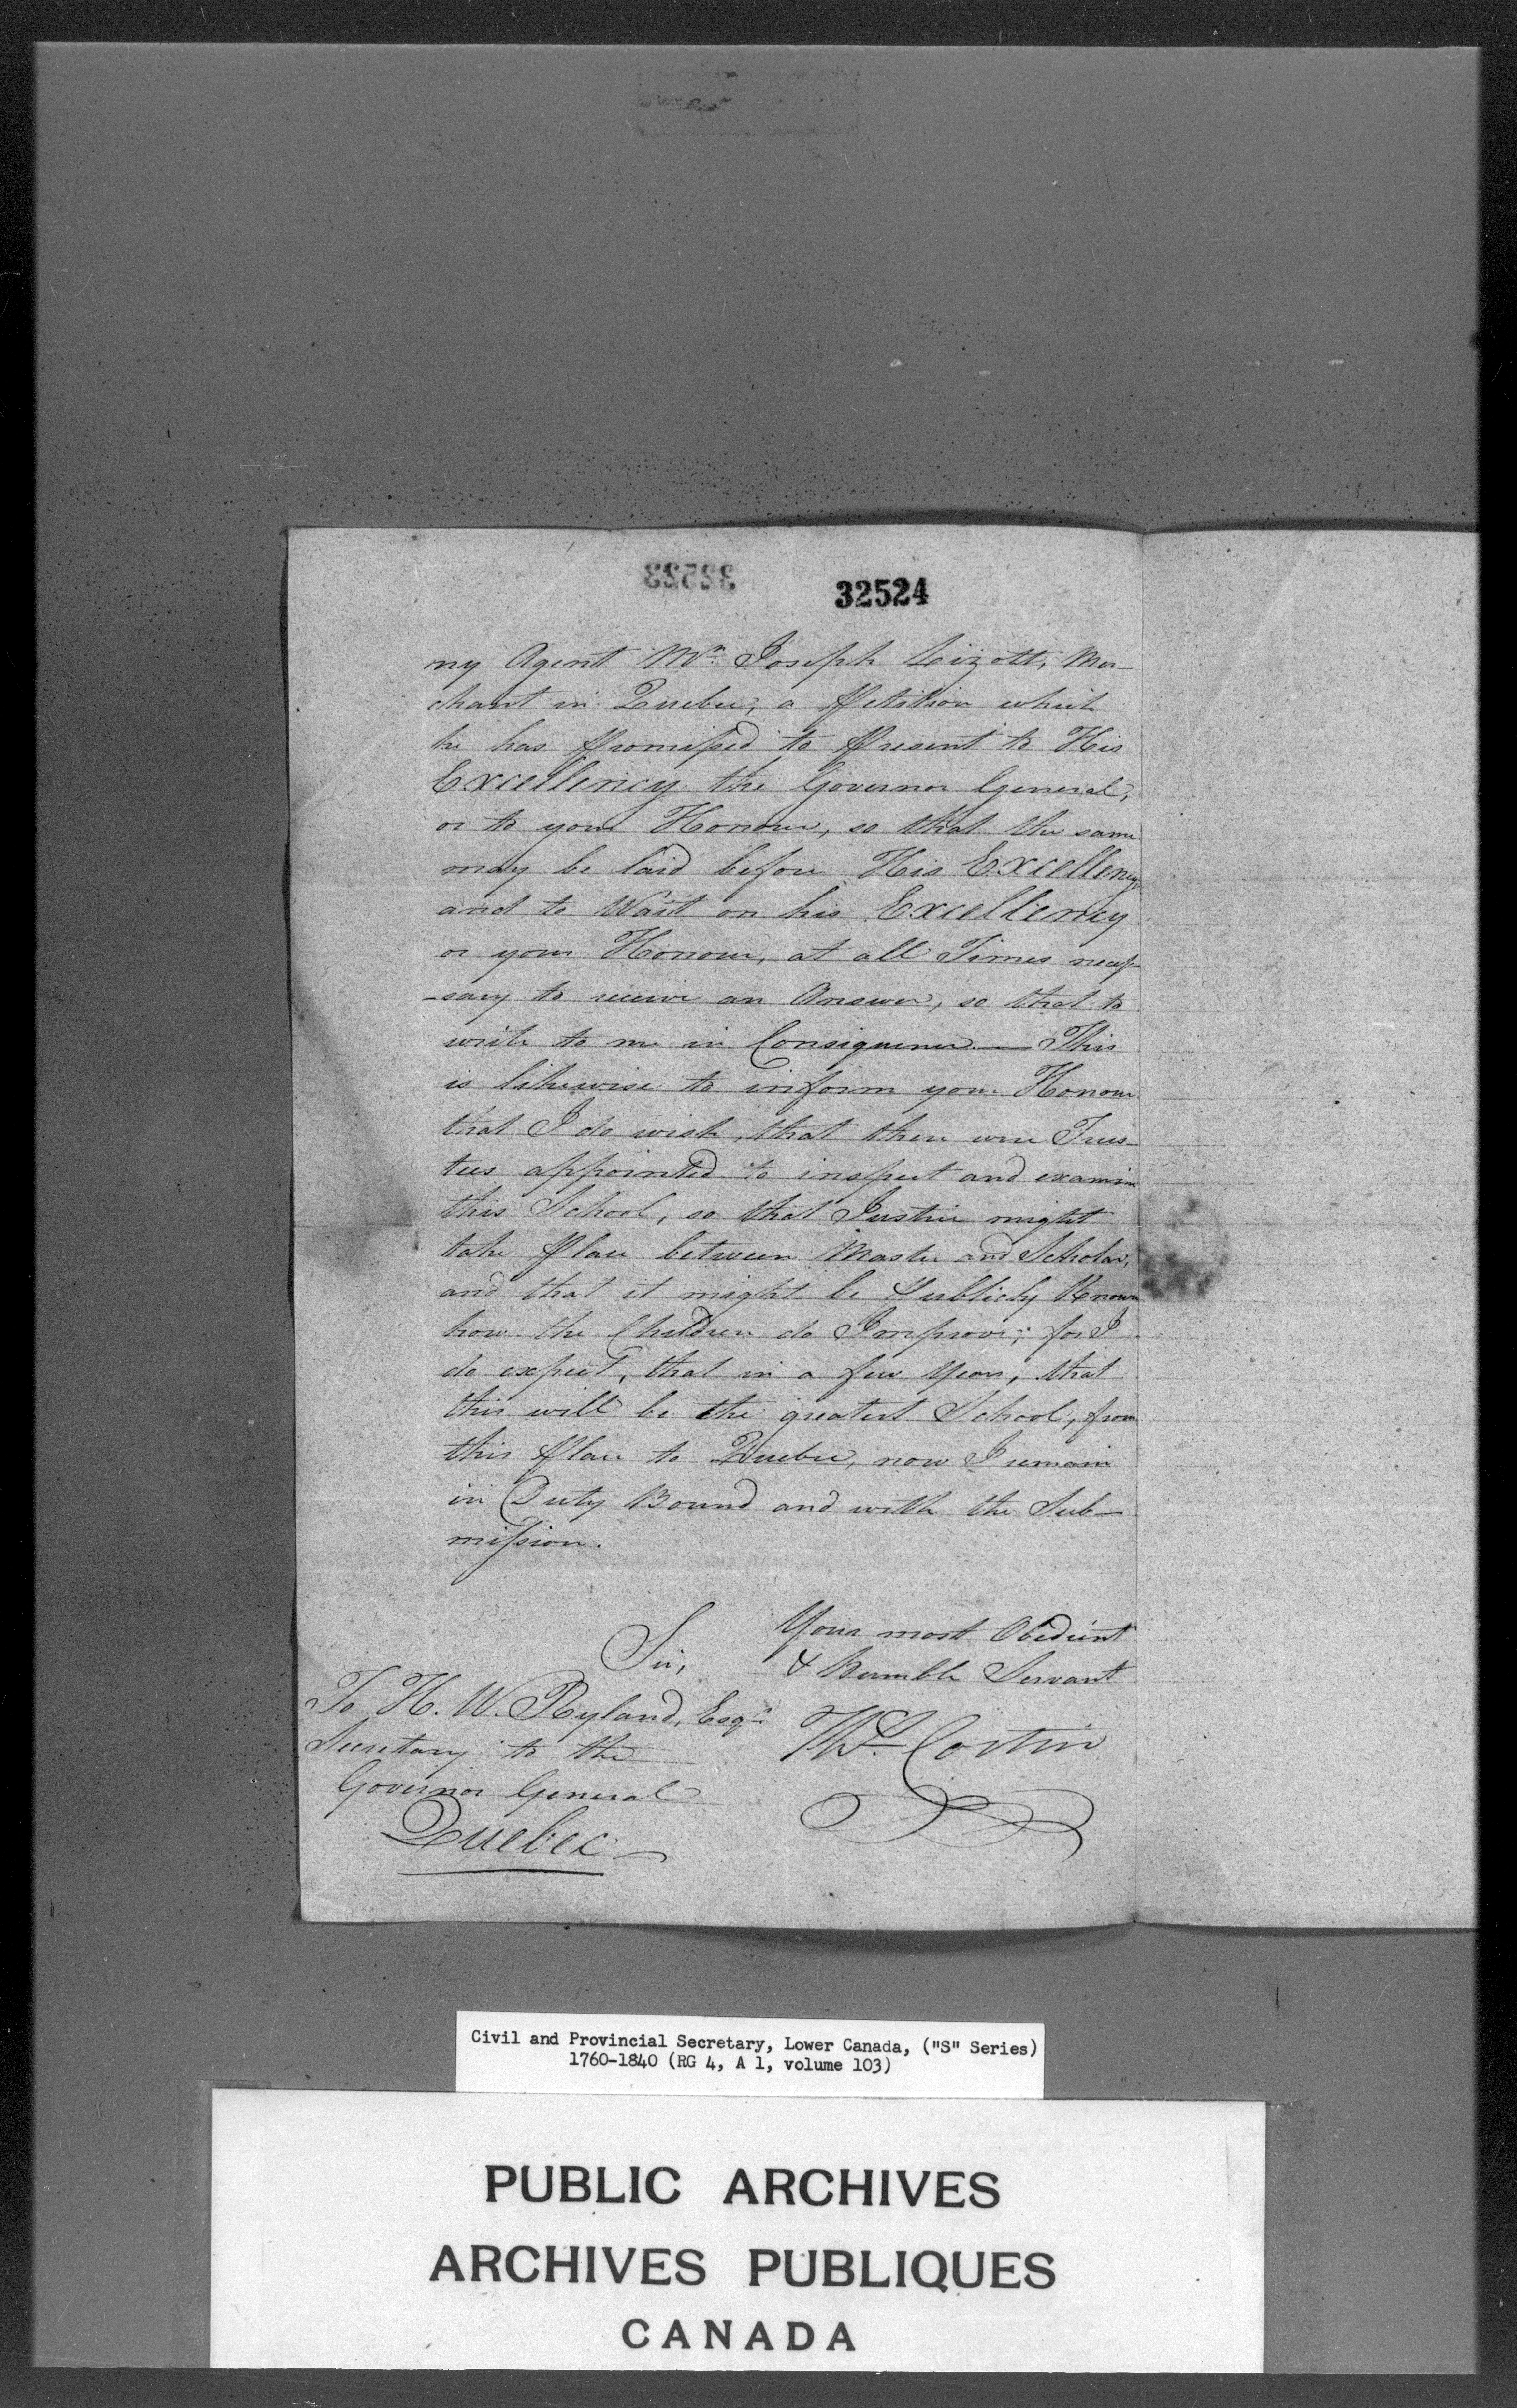 32524
my Agent Mr. Joseph Lizott, Mer-
chant in Quebec; a Petition which
he has Promised to Present to His
Excellency the Governor General,
or to your Honour, so that the same
may be laid before His Excellency
and to Wait on his Excellency
or your Honour, at all Times neces-
-sary to receive an Answer, so that to
write to me in Consequence. — This
is likewise to inform your Honour
that I do wish, that there were Trus-
tees appointed to inspect and examine
this School, so that Justice might
take Place between Master and Scholar,
and that it might be Publicly Known
how the Children do Improve; for I
do expect, that in a few Years, that
this will be the greatest School, from
this Place to Quebec, now I remain
in Duty Bound and with the Sub-
mission.
Sir,
Your most Obedient
& Humble Servant
Ths. Costin
To H. W. Ryland, Esqr.
Secretary to the
Governor General
Quebec
Civil and Provincial Secretary, Lower Canada, ("S" Series)
1760-1840 (RG 4, A 1, volume 103)
PUBLIC ARCHIVES
ARCHIVES PUBLIQUES
CANADA